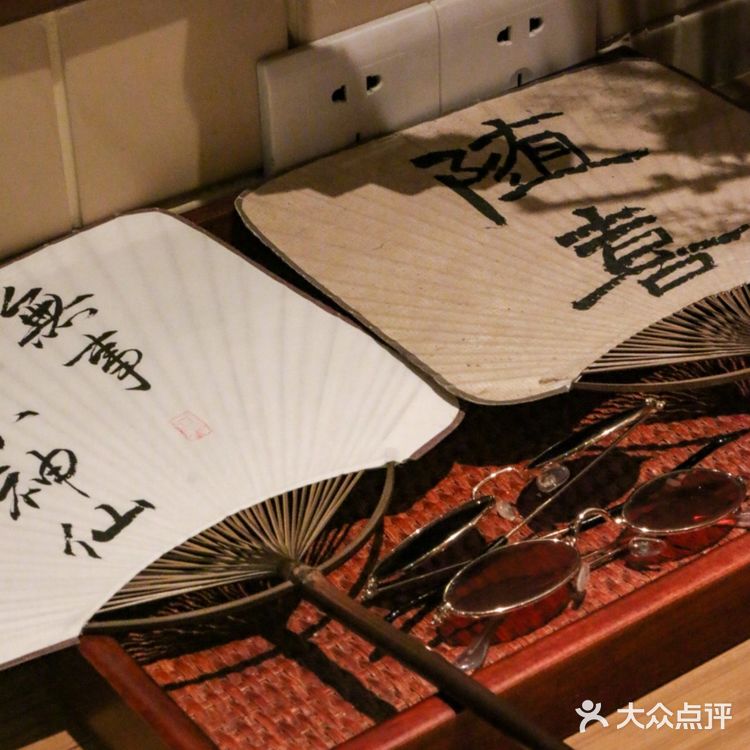 随
喜
無事
神仙
大众点评